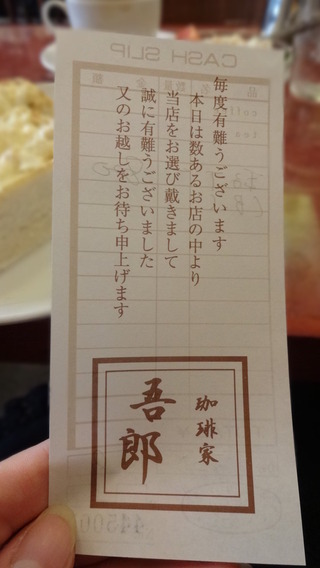 毎度有難うございます
本日は数あるお店の中より
当店をお選び戴きまして
誠に有難うございました
又のお越しをお待ち申上げます
珈琲家
吾郎
CASH SLIP